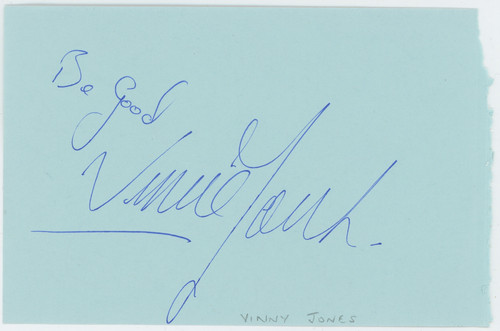 Be Good
Vinnie Jones
VINNY JONES